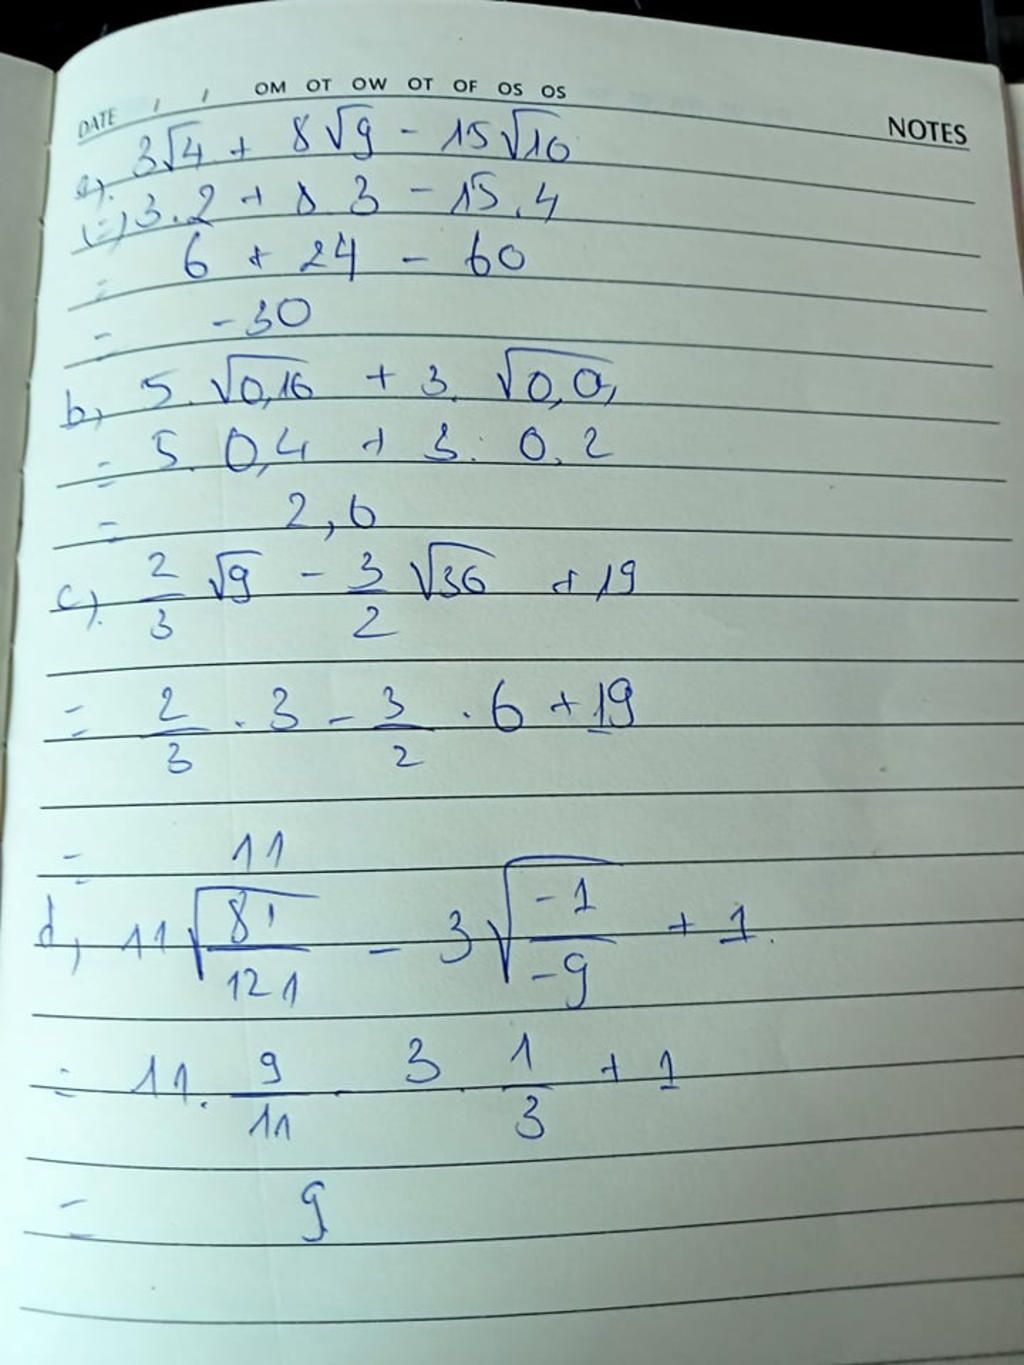 OM OT OW OT OF OS OS
DATE / /
NOTES
a). 3√4 + 8√9 - 15√16
(=) 3.2 + 8 3 - 15.4
= 6 + 24 - 60
= -30
b, 5.√0,16 + 3.√0,0,
= 5. 0,4 + 3. 0.2
= 2,6
c). 2/3 √9 - 3/2 √36 + 19
= 2/3 . 3 - 3/2 . 6 + 19
= 11
d, 11√(81/121) - 3√(-1/-9) + 1.
= 11. 9/11 - 3. 1/3 + 1
= 9